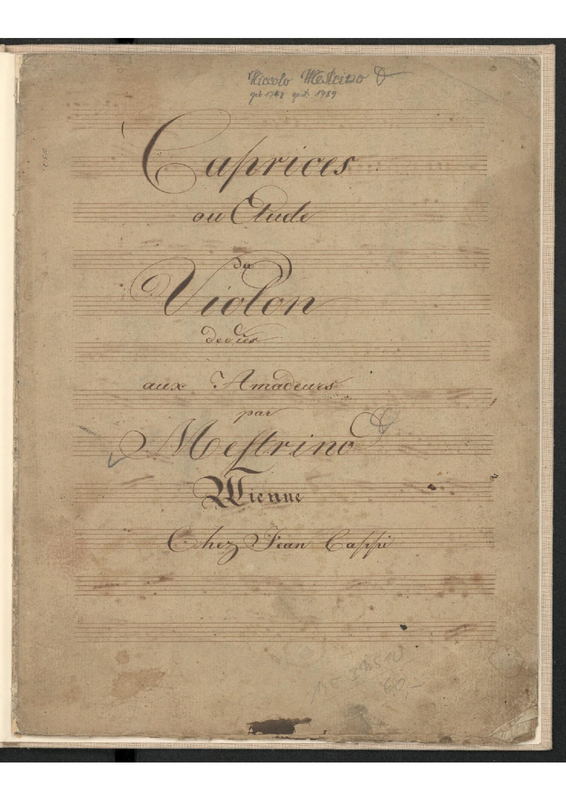 Niccolo Mestrino
geb 1748 gest. 1789
Caprices
ou Etude
du
Violon
dediès
aux Amadeurs
par
Mestrino
Wienne
Chez Jean Cappi